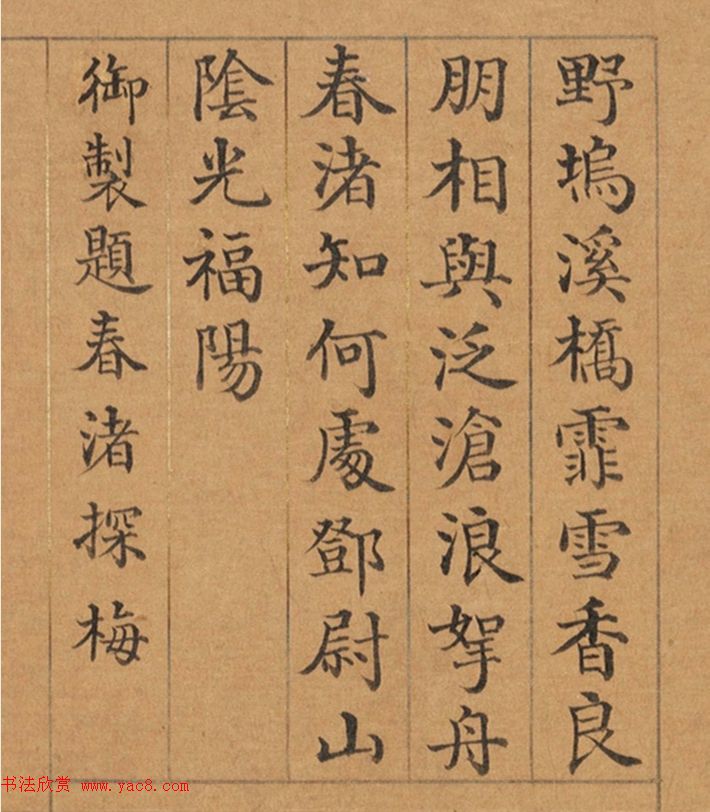 野塢溪橋霏雪香良
朋相與泛滄浪挐舟
春渚知何處鄧尉山
陰光福陽
御製題春渚探梅
书法欣赏 www.yac8.com